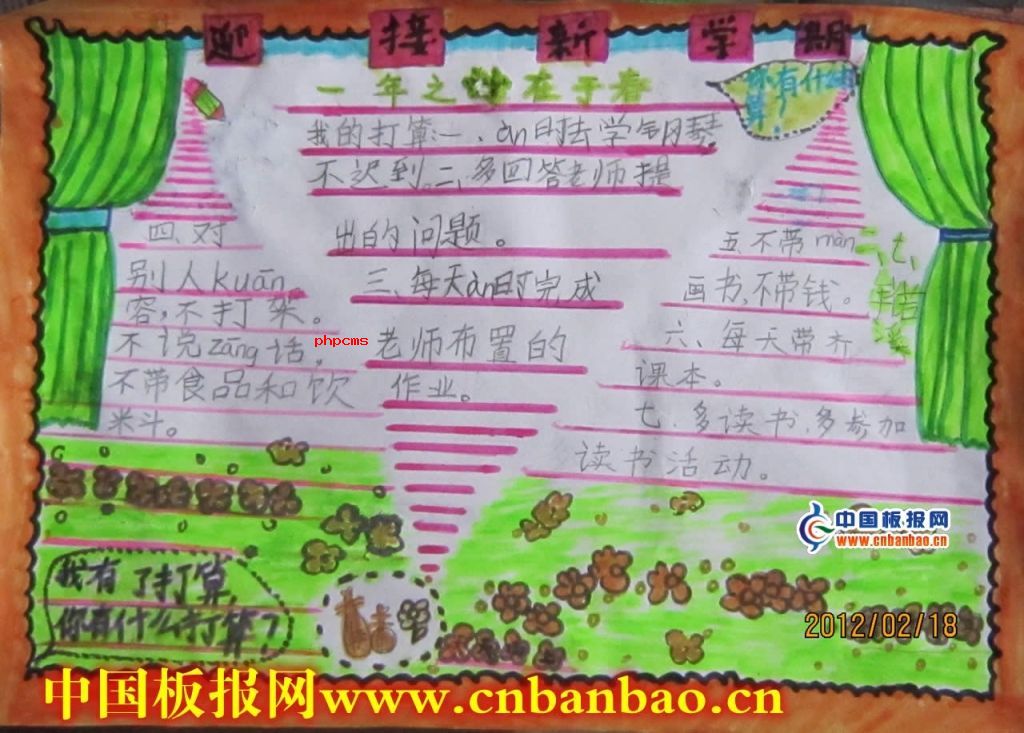 迎接新学期
一年之计在于春
你有什么打算？
我的打算：一、àn时去学钢琴
不迟到。二、多回答老师提
出的问题。
三、每天àn时完成
老师布置的
作业。
四、对
别人kuān
容，不打架。
不说zāng话，
不带食品和饮
米斗。
五、不带màn
画书，不带钱。
六、每天带齐
课本。
七、多读书，多参加
读书活动。
二、七、
phpcms
我有了打算，
你有什么打算？
中国板报网
www.cnbanbao.cn
2012/02/18
中国板报网www.cnbanbao.cn